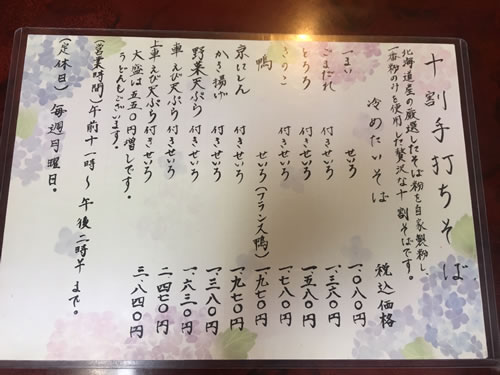 十割手打ちそば
北海道産の厳選したそば粉を自家製粉し
一番粉のみを使用した贅沢な十割そばです。
冷めたいそば 税込価格
一まい せいろ 一、〇八〇円
ごまだれ 付きせいろ 一、三六〇円
とろろ 付きせいろ 一、五八〇円
きのこ 付きせいろ 一、七八〇円
鴨 せいろ(フランス鴨) 一、九七〇円
京にしん 付きせいろ 一、九七〇円
かき揚げ 付きせいろ 一、三八〇円
野菜天ぷら 付きせいろ 一、六三〇円
車えび天ぷら 付きせいろ 二、四七〇円
上車えび天ぷら 付きせいろ 三、八四〇円
大盛は五五〇円増しです。
うどんもございます。
(営業時間)午前十一時〜午後二時半まで。
(定休日)毎週月曜日。